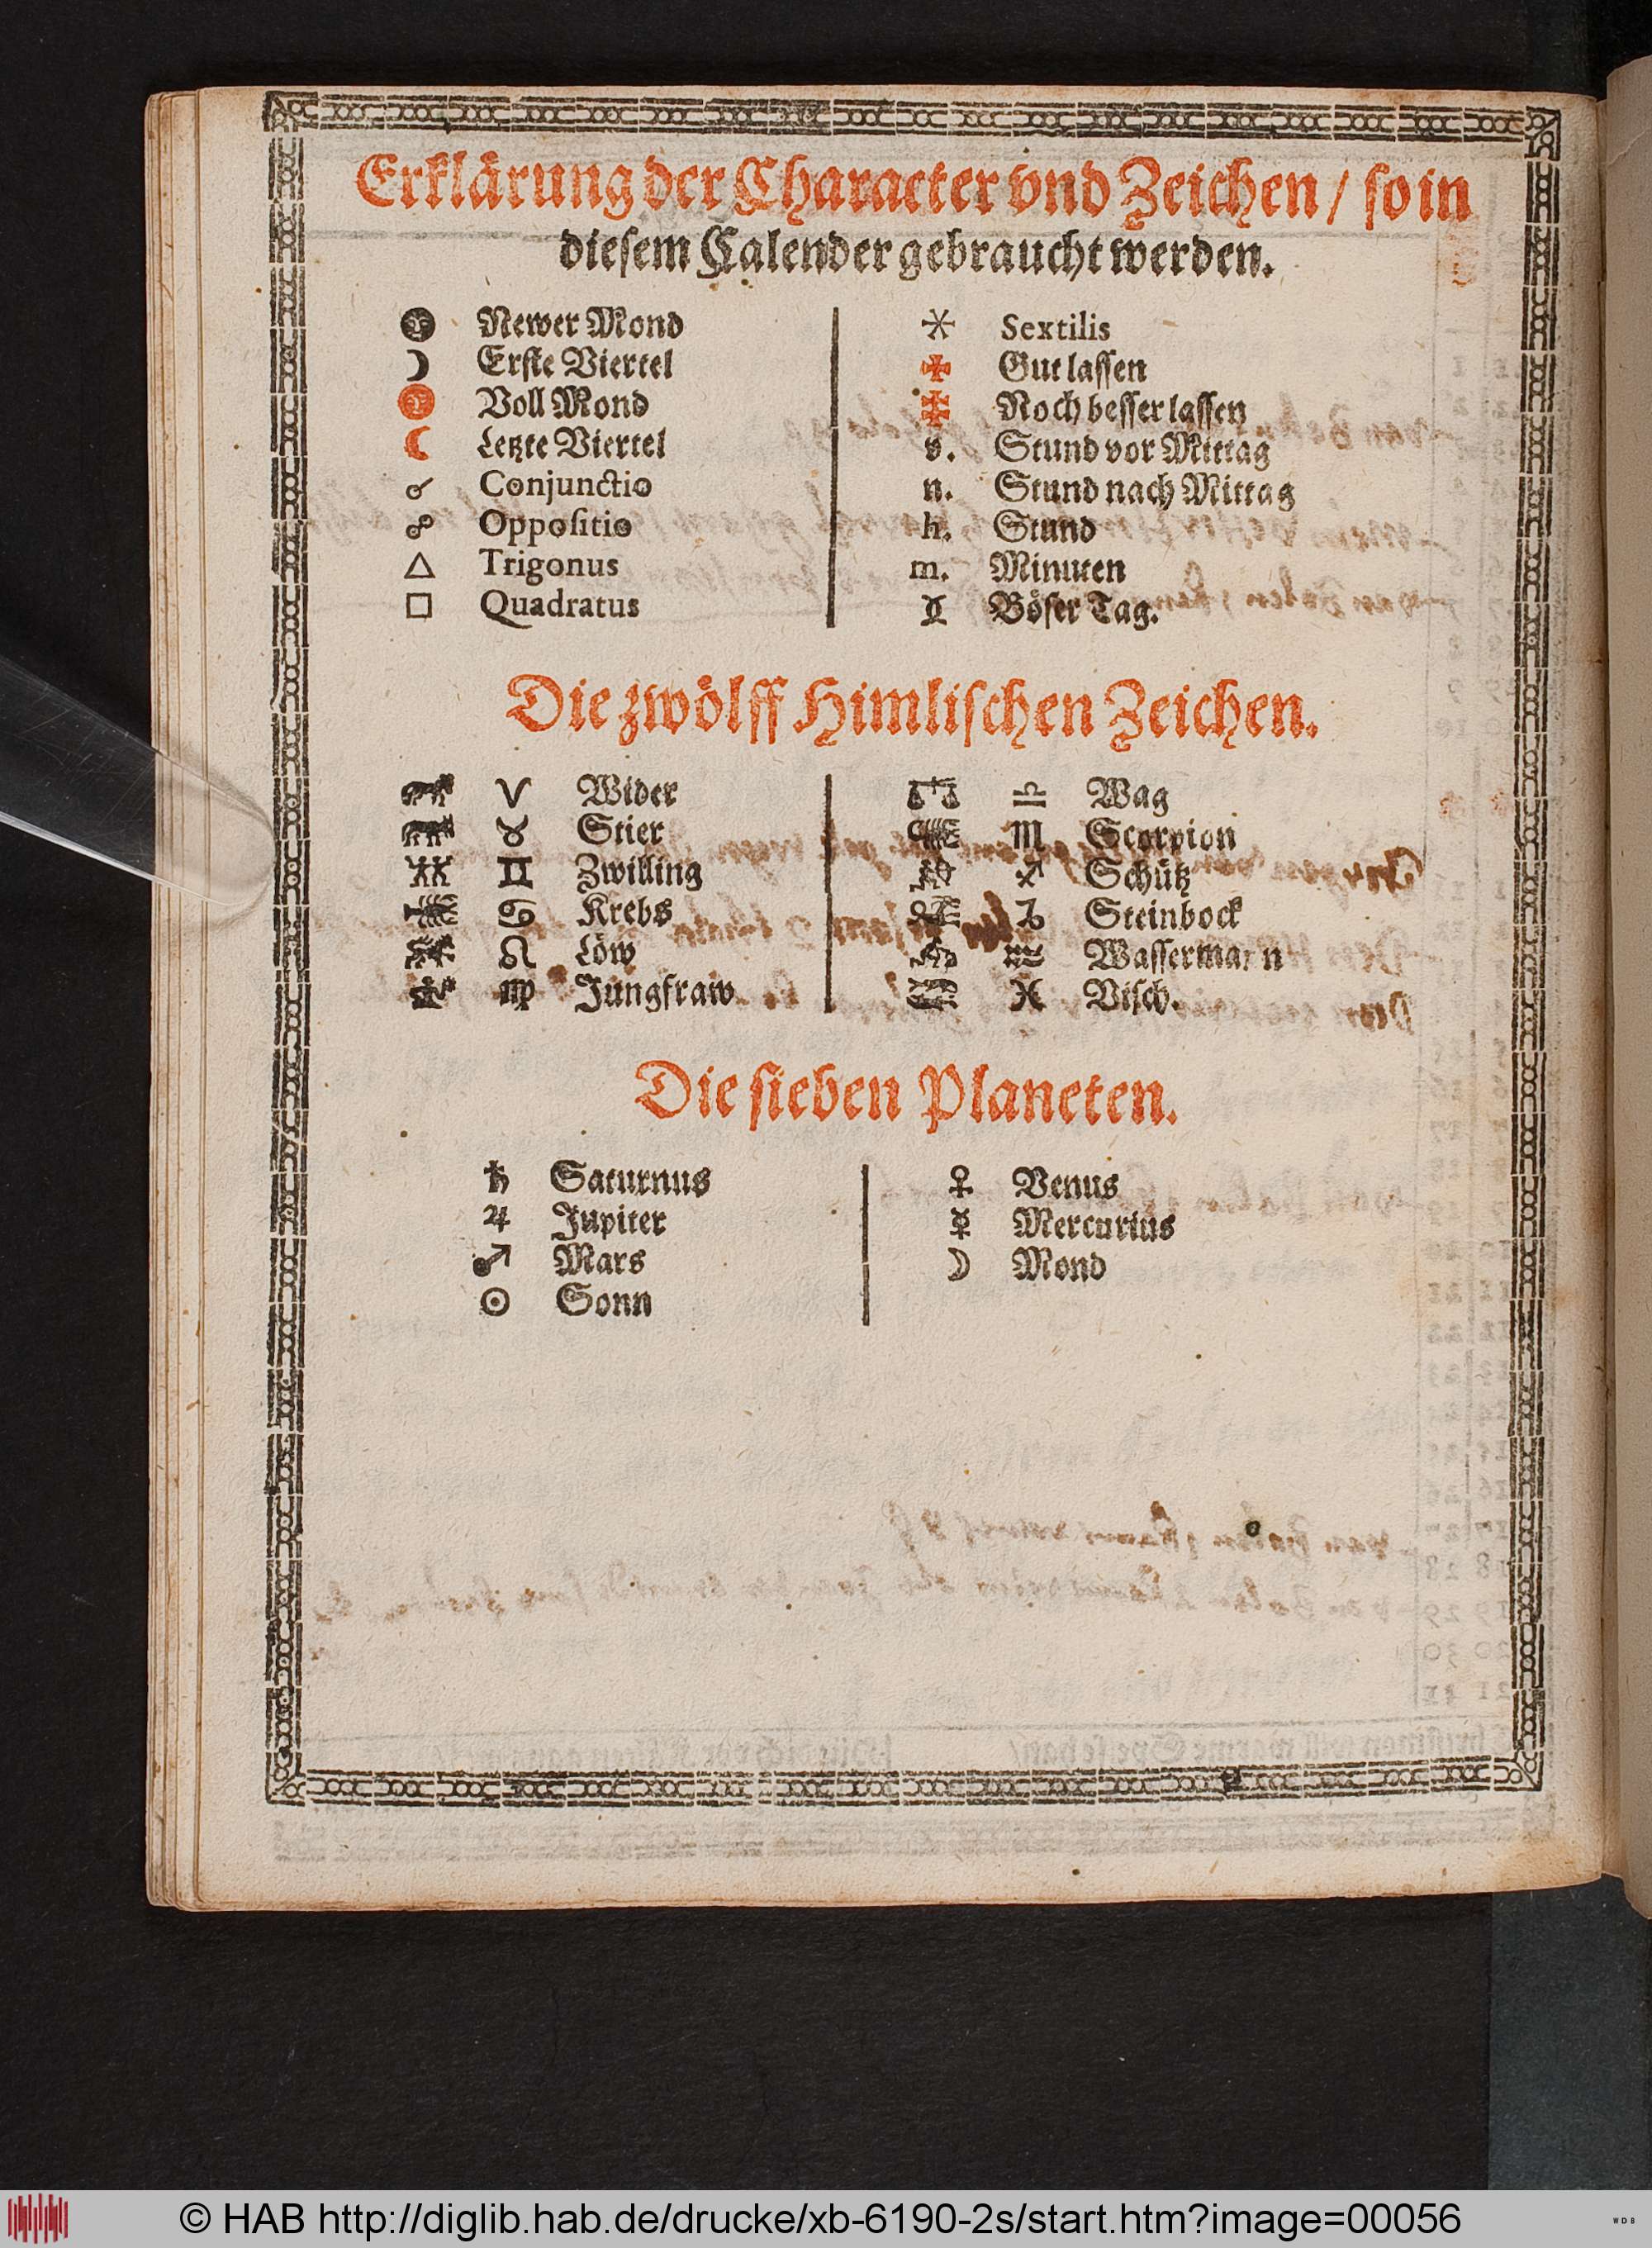 Erklärung der Character vnd Zeichen / so in
diesem Calender gebraucht werden.
Newer Mond
Erste Viertel
Voll Mond
Letzte Viertel
☌ Conjunctio
☍ Oppositio
△ Trigonus
□ Quadratus
Sextilis
Gut lassen
Noch besser lassen
v. Stund vor Mittag
n. Stund nach Mittag
h. Stund
m. Minuten
Böser Tag.
Die zwölff Himlischen Zeichen.
♈ Wider
♉ Stier
♊ Zwilling
♋ Krebs
♌ Löw
♍ Jungfraw
♎ Wag
♏ Scorpion
♐ Schütz
♑ Steinbock
♒ Wasserman n
♓ Visch.
Die sieben Planeten.
♄ Saturnus
♃ Jupiter
♂ Mars
☉ Sonn
♀ Venus
☿ Mercurius
☽ Mond
© HAB http://diglib.hab.de/drucke/xb-6190-2s/start.htm?image=00056
WDB